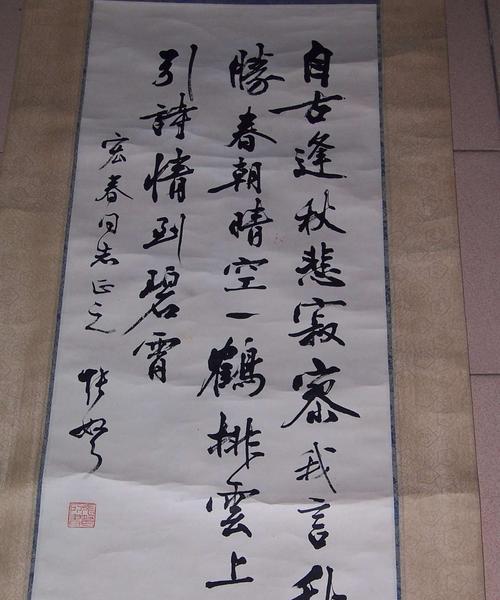 自古逢秋悲寂寥我言秋
勝春朝晴空一鶴排雲上
引詩情到碧霄
宏春同志正之
張